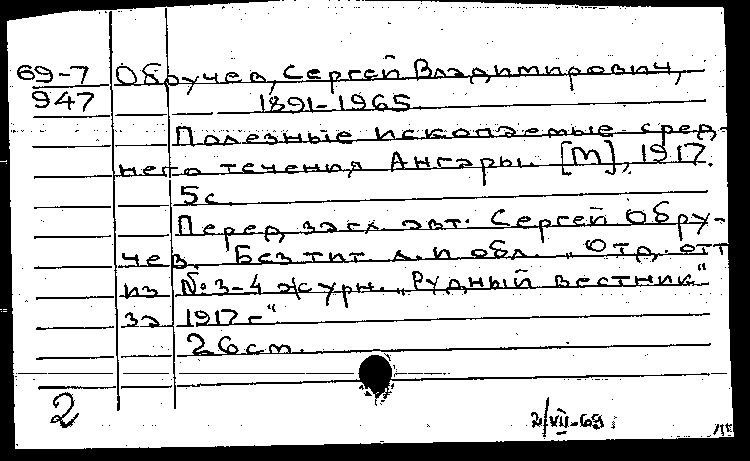 69-7 Обручев, Сергей Владимирович,
947 1891-1965.
Полезные ископаемые сред-
него течения Ангары. [М], 1917.
5 с.
Перед загл. авт. Сергей Обру-
чев. Без тит. л. и обл. „Отд. отт
из № 3-4 журн. „Рудный вестник“
за 1917 г“
26 см.
2
2/VII-69